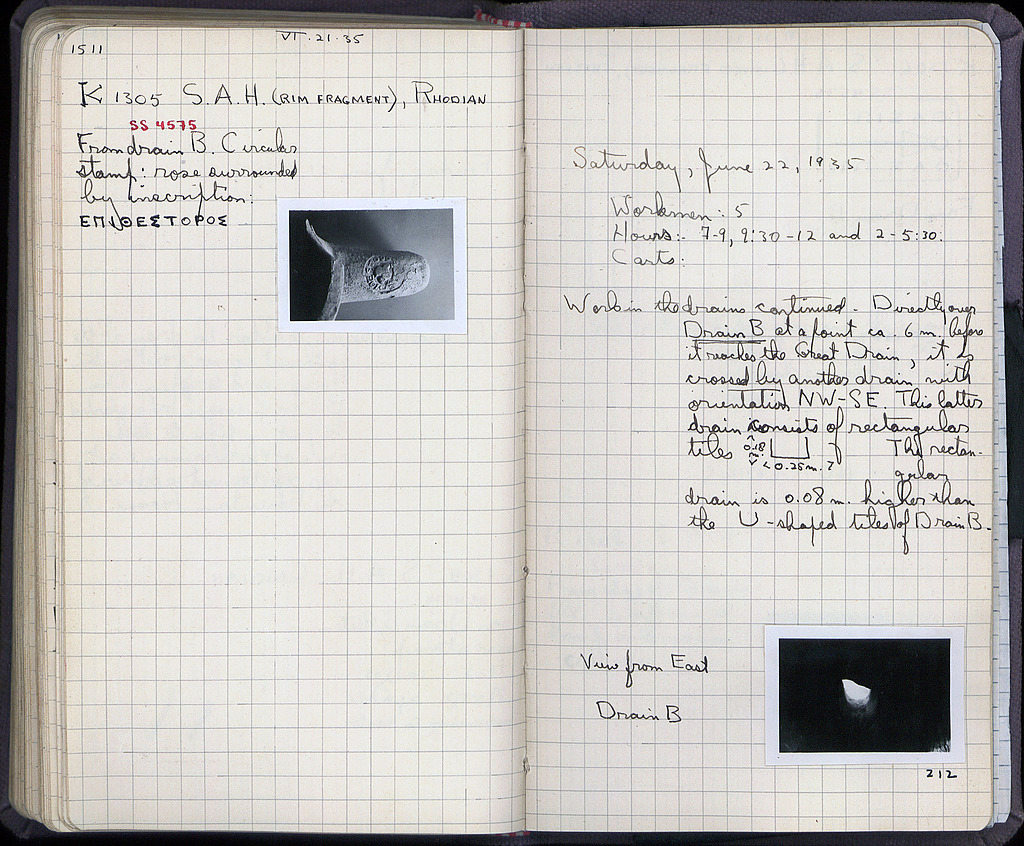 1511
VI·21·35
K 1305 S.A.H. (RIM FRAGMENT), RHODIAN
SS 4575
From drain B. Circular
stamp: rose surrounded
by inscription:
ΕΠΙΘΕΣΤΟΡΟΣ
Saturday, June 22, 1935
Workmen: 5
Hours:- 7-9, 9:30-12 and 2-5:30.
Carts:
Work in the drains continued. Directly over
Drain B at a point ca. 6 m. before
it reaches the Great Drain, it is
crossed by another drain with
orientation NW-SE. This latter
drain consists of rectangular
tiles 0.18 m. < 0.25 m. > The rectan-
gular
drain is 0.08 m. higher than
the U-shaped tiles of Drain B.
View from East
Drain B
212